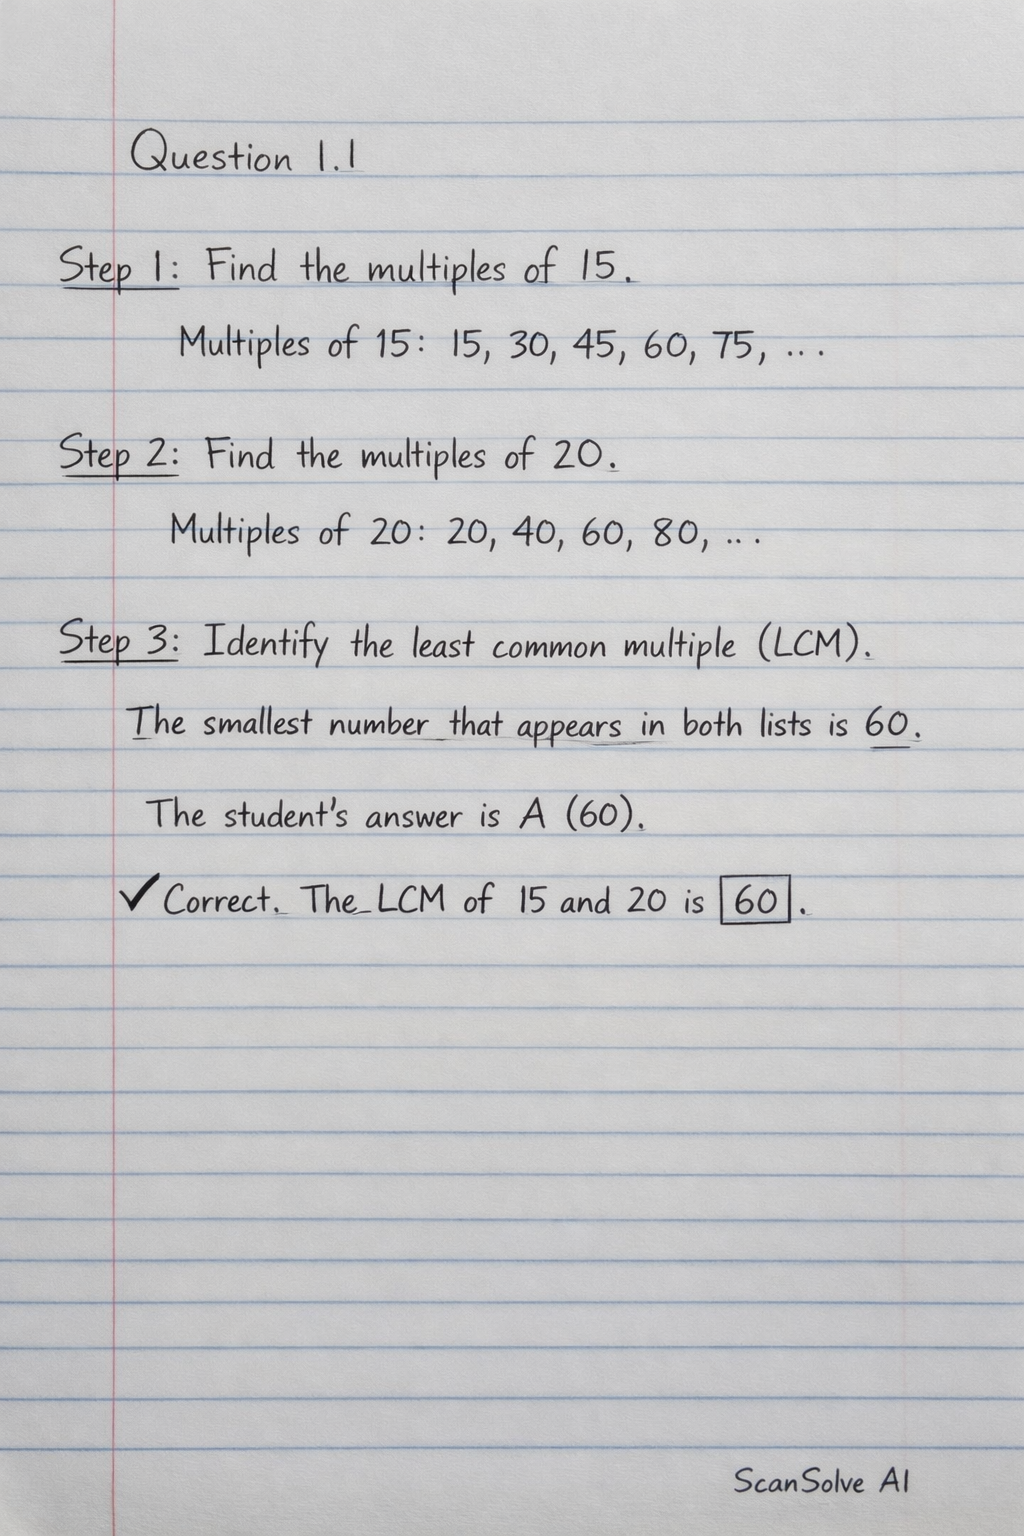 Question 1.1
Step 1: Find the multiples of 15.
Multiples of 15: 15, 30, 45, 60, 75, ...
Step 2: Find the multiples of 20.
Multiples of 20: 20, 40, 60, 80, ...
Step 3: Identify the least common multiple (LCM).
The smallest number that appears in both lists is 60.
The student's answer is A (60).
✓ Correct. The LCM of 15 and 20 is 60.
ScanSolve AI